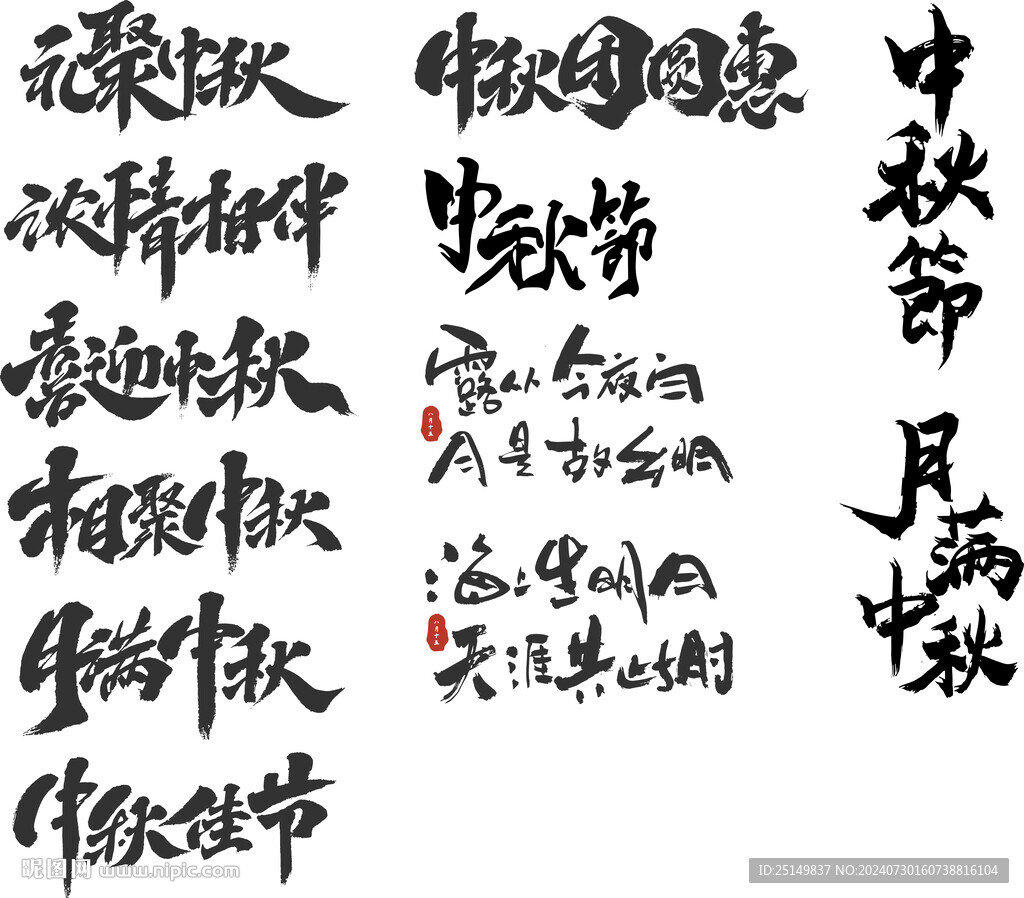 礼聚中秋
浓情相伴
喜迎中秋
相聚中秋
月满中秋
中秋佳节
中秋团圆惠
中秋節
露从今夜白
八月十五
月是故乡明
海上生明月
八月十五
天涯共此时
中秋節
月满中秋
昵图网 www.nipic.com
ID:25149837 NO:20240730160738816104